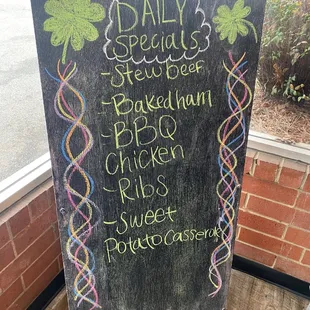 DAILY
Specials
-Stew Beef
-Baked ham
-BBQ
Chicken
-Ribs
-Sweet
Potato Casserole